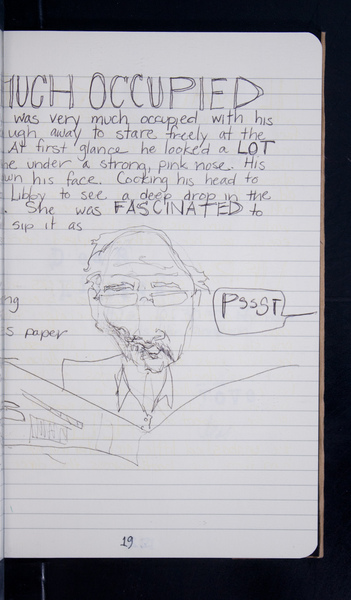 MUCH OCCUPIED
was very much occupied with his
ugh away to stare freely at the
At first glance he looked a LOT
e under a strong, pink nose. His
wn his face. Cocking his head to
Libby to see a deep drop in the
. She was FASCINATED to
sip it as
PSSST
ng
s paper
19